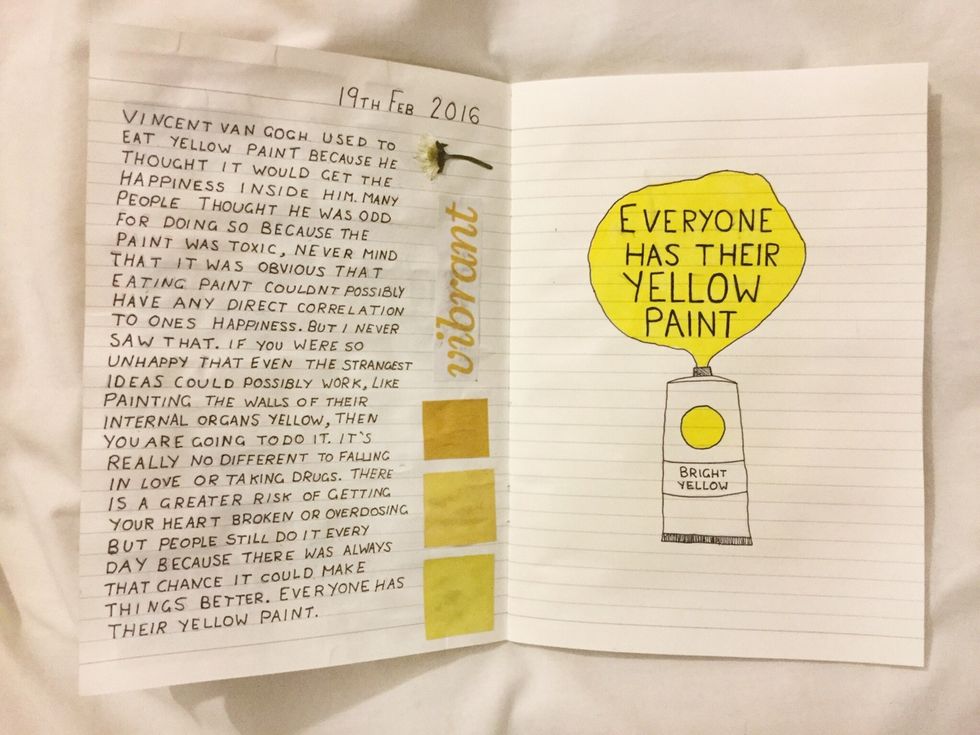 19TH FEB 2016
VINCENT VAN GOGH USED TO
EAT YELLOW PAINT BECAUSE HE
THOUGHT IT WOULD GET THE
HAPPINESS INSIDE HIM. MANY
PEOPLE THOUGHT HE WAS ODD
FOR DOING SO BECAUSE THE
PAINT WAS TOXIC, NEVER MIND
THAT IT WAS OBVIOUS THAT
EATING PAINT COULDNT POSSIBLY
HAVE ANY DIRECT CORRELATION
TO ONES HAPPINESS. BUT I NEVER
SAW THAT. IF YOU WERE SO
UNHAPPY THAT EVEN THE STRANGEST
IDEAS COULD POSSIBLY WORK, LIKE
PAINTING THE WALLS OF THEIR
INTERNAL ORGANS YELLOW, THEN
YOU ARE GOING TO DO IT. IT'S
REALLY NO DIFFERENT TO FALLING
IN LOVE OR TAKING DRUGS. THERE
IS A GREATER RISK OF GETTING
YOUR HEART BROKEN OR OVERDOSING
BUT PEOPLE STILL DO IT EVERY
DAY BECAUSE THERE WAS ALWAYS
THAT CHANCE IT COULD MAKE
THINGS BETTER. EVERYONE HAS
THEIR YELLOW PAINT.
vibrant
EVERYONE
HAS THEIR
YELLOW
PAINT
BRIGHT
YELLOW